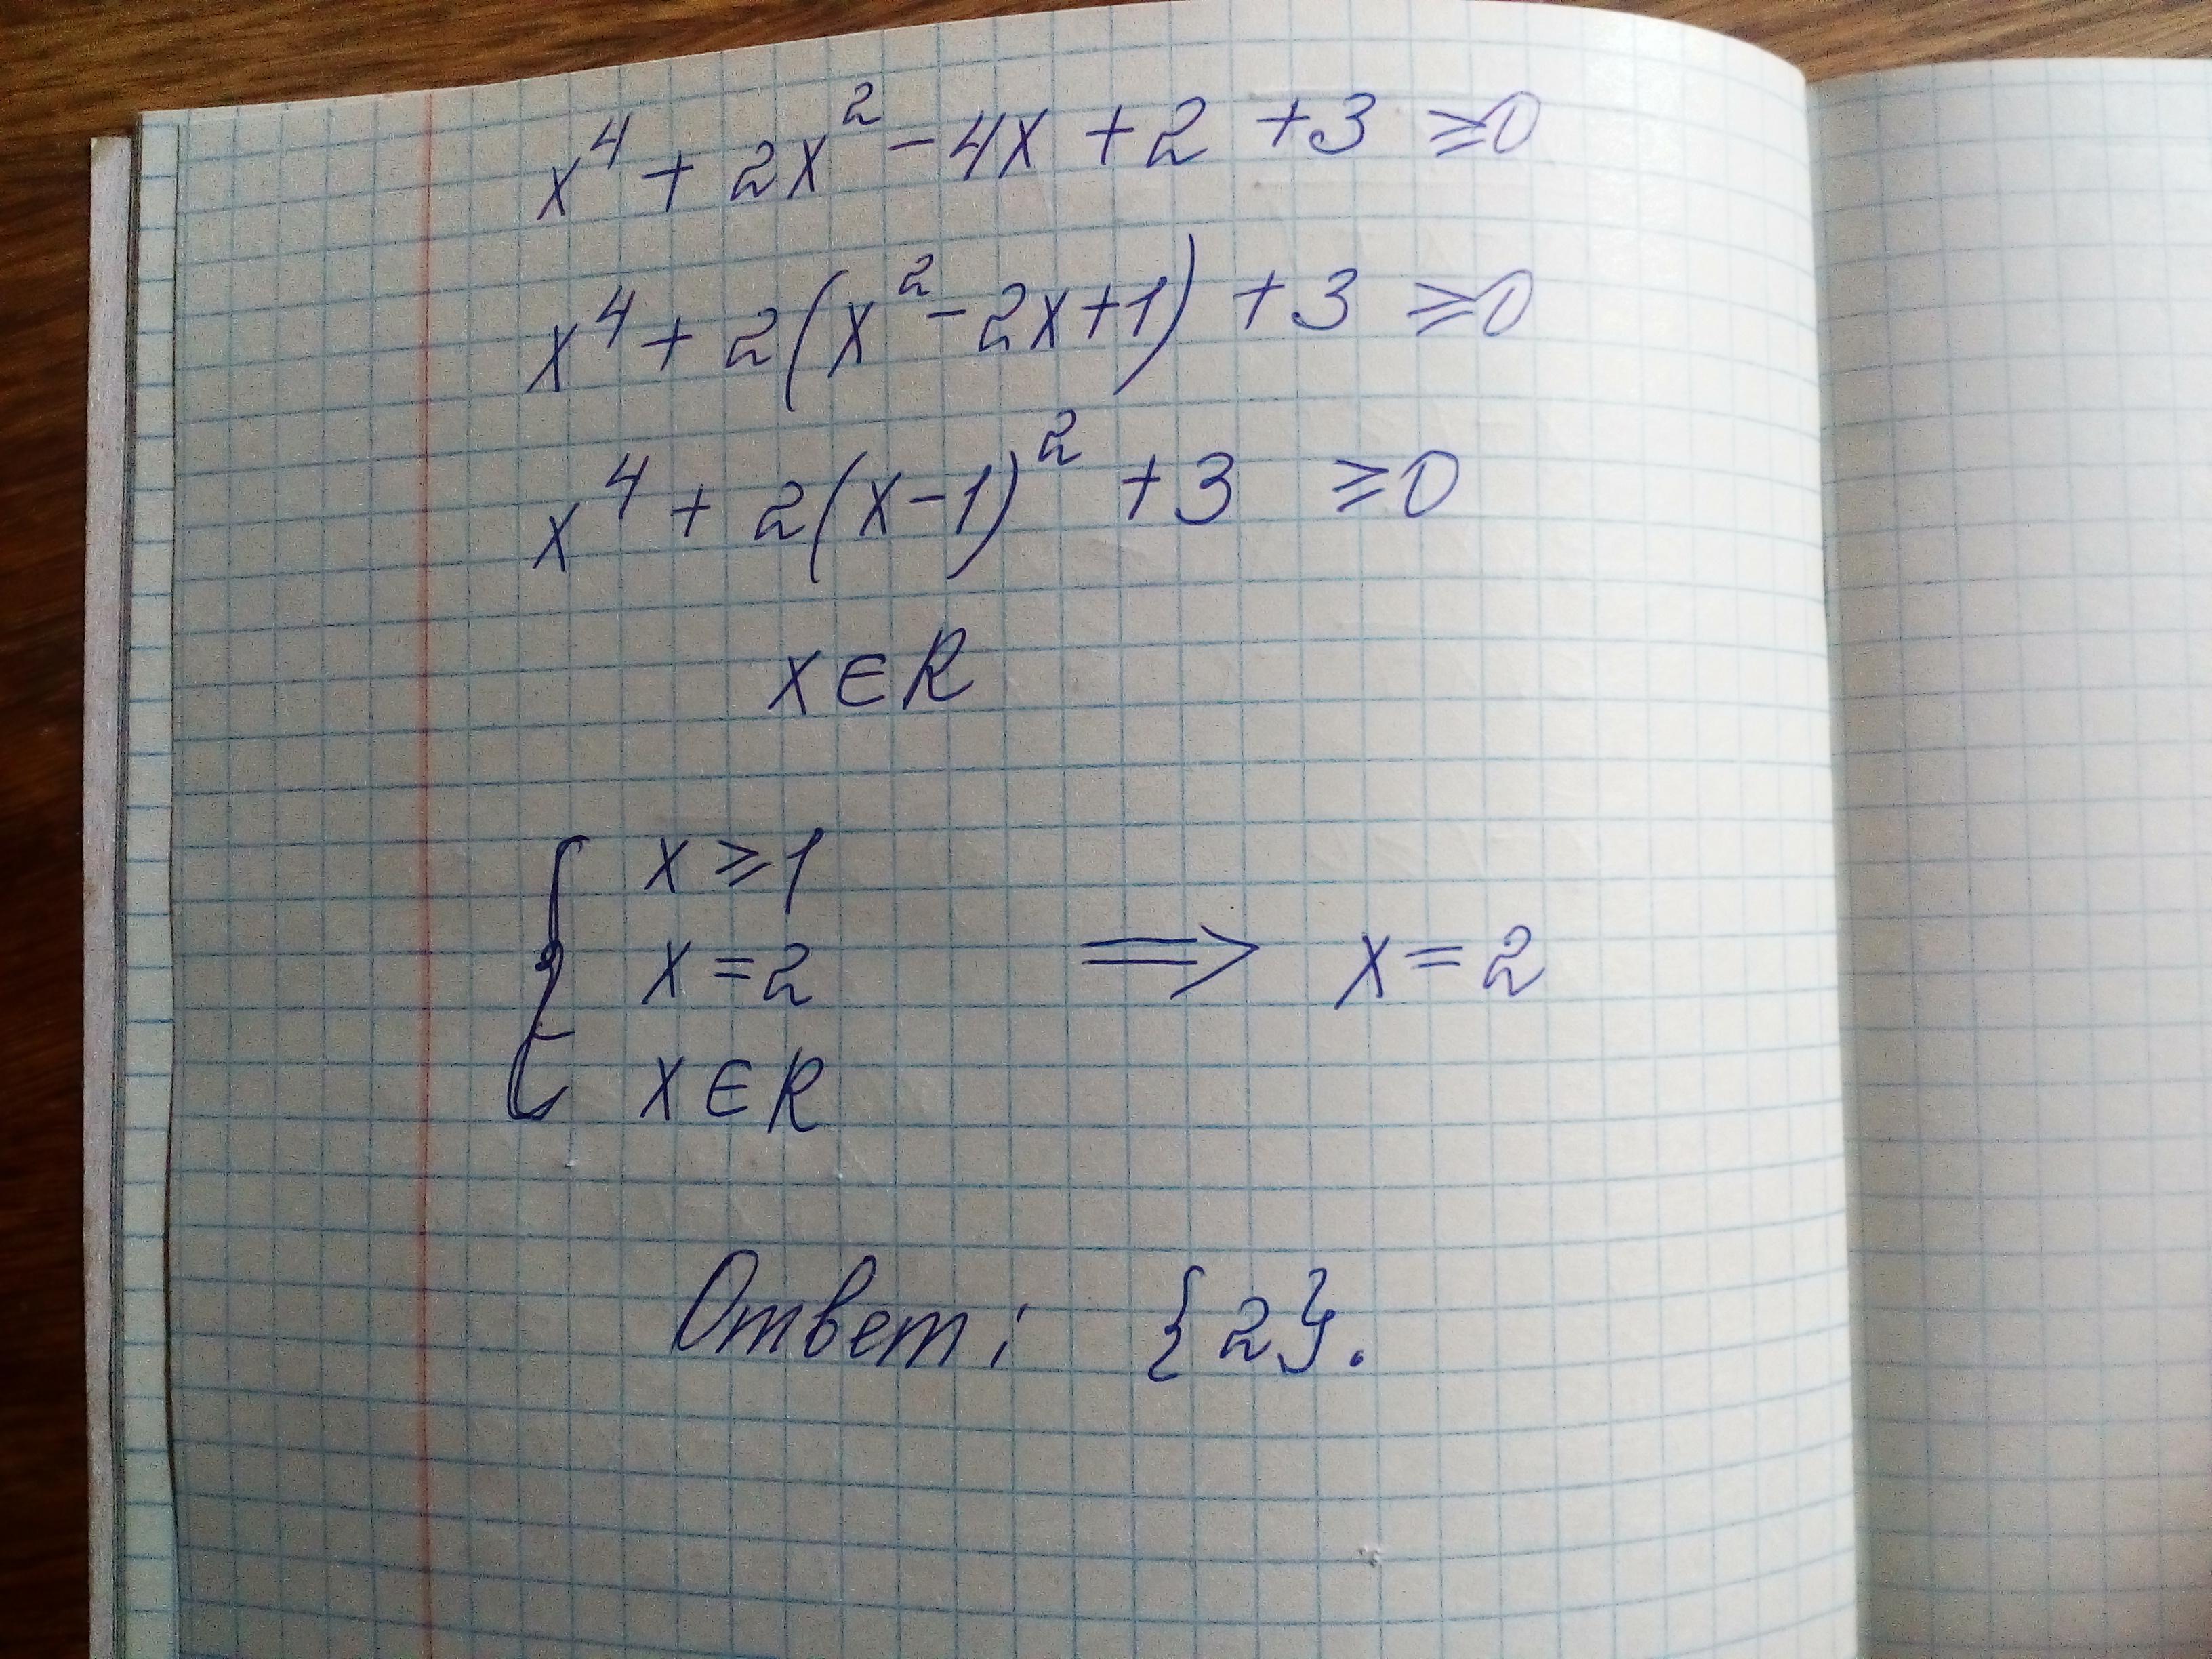 x⁴ + 2x² - 4x + 2 + 3 ⩾ 0
x⁴ + 2(x² - 2x + 1) + 3 ⩾ 0
x⁴ + 2(x - 1)² + 3 ⩾ 0
x ∈ R
{ x ⩾ 1
x = 2 ⟹ x = 2
x ∈ R
Ответ: {2}.